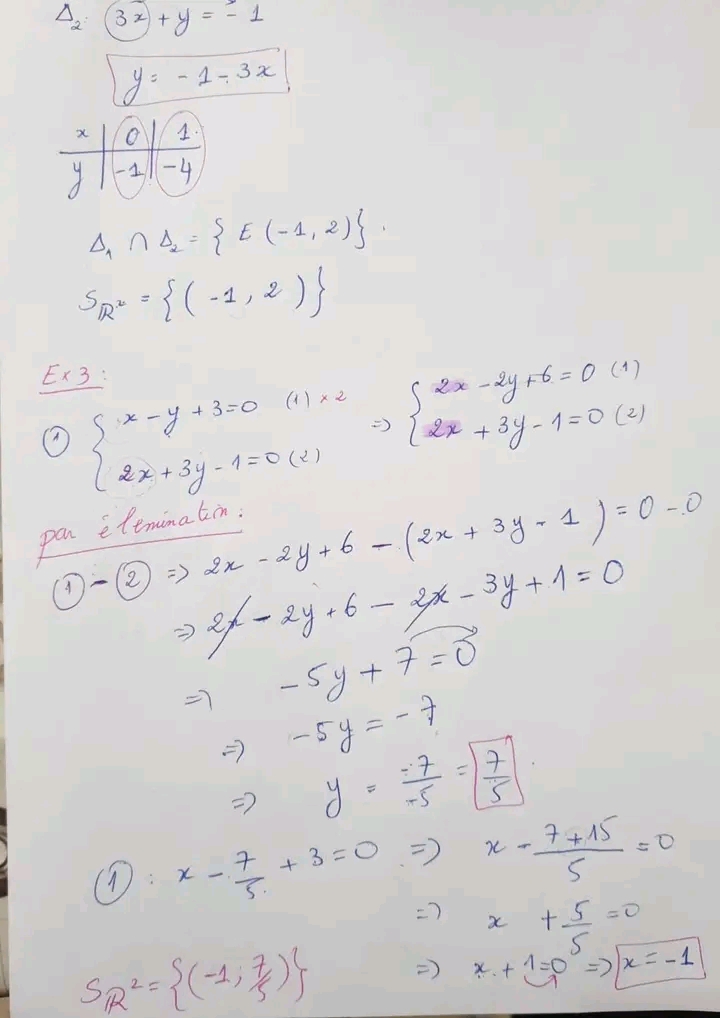 Δ₂: 3x + y = - 1
y = - 1 - 3x
x | 0 | 1
y | -1 | -4
Δ₁ ∩ Δ₂ = { E (-1, 2)}.
S_ℝ² = {( -1, 2 )}
Ex 3:
① { x - y + 3 = 0 (1) × 2 => { 2x - 2y + 6 = 0 (1)
2x + 3y - 1 = 0 (2) 2x + 3y - 1 = 0 (2)
par élemination:
① - ② => 2x - 2y + 6 - (2x + 3y - 1) = 0 - 0
=> 2x - 2y + 6 - 2x - 3y + 1 = 0
=> -5y + 7 = 0
=> -5y = -7
=> y = -7/-5 = 7/5.
①: x - 7/5 + 3 = 0 => x - 7+15/5 = 0
=> x + 5/5 = 0
=> x + 1 = 0 => x = -1
S_ℝ² = {(-1; 7/5)}